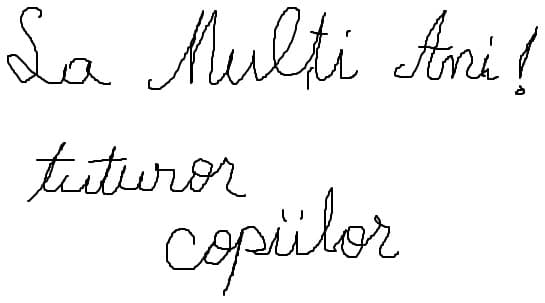 La Mulți Ani!
tuturor
copiilor